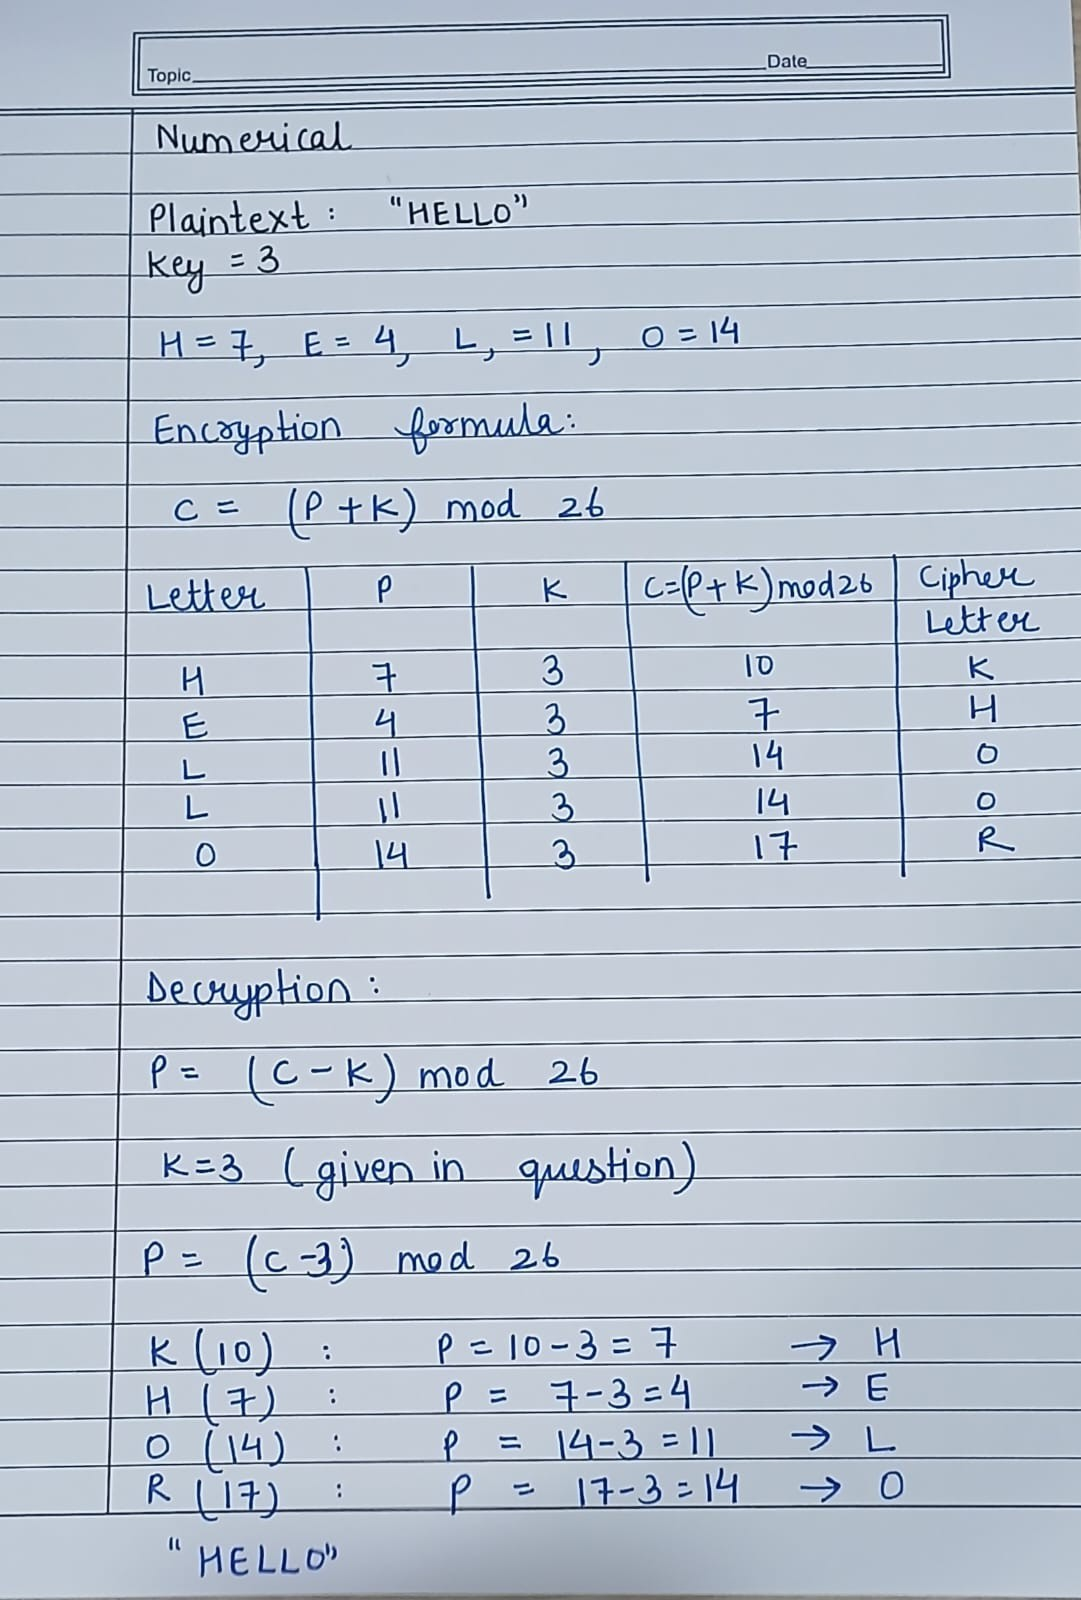 Topic Date
Numerical
Plaintext : "HELLO"
Key = 3
H = 7, E = 4, L, = 11, O = 14
Encryption formula:
C = (P + K) mod 26
Letter P K C=(P+K)mod26 Cipher
Letter
H 7 3 10 K
E 4 3 7 H
L 11 3 14 O
L 11 3 14 O
O 14 3 17 R
Decryption :
P = (C - K) mod 26
K=3 (given in question)
P = (C-3) mod 26
K (10) : P = 10 - 3 = 7 → H
H (7) : P = 7-3 = 4 → E
O (14) : P = 14-3 = 11 → L
R (17) : P = 17-3 = 14 → O
"HELLO"